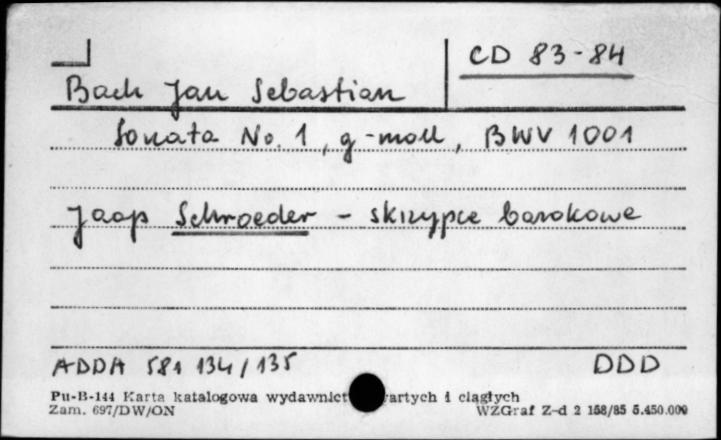 CD 83-84
Bach Jan Sebastian
Sonata No. 1, g-moll, BWV 1001
Jaap Schroeder - skrzypce barokowe
ADDA 581 134/135 DDD
Pu-B-144 Karta katalogowa wydawnict artych i ciągłych
Zam. 697/DW/ON WZGraf Z-d 2 158/85 5.450.000